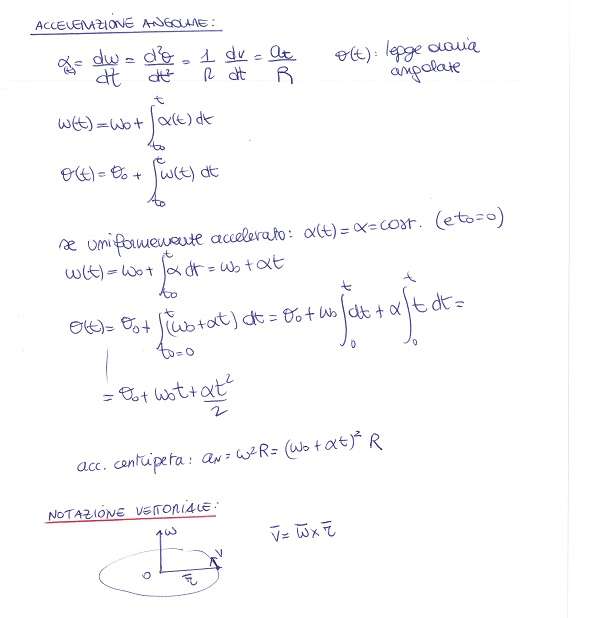 ACCELERAZIONE ANGOLARE:
α(t) = dω/dt = d²θ/dt² = 1/R dv/dt = at/R θ(t): legge oraria
angolare
ω(t) = ω0 + ∫t0^t α(t) dt
θ(t) = θ0 + ∫t0^t ω(t) dt
se uniformemente accelerato: α(t) = α = cost. (e t0=0)
ω(t) = ω0 + ∫t0^t α dt = ω0 + αt
θ(t) = θ0 + ∫t0=0^t (ω0 + αt) dt = θ0 + ω0 ∫0^t dt + α ∫0^t t dt =
= θ0 + ω0t + αt²/2
acc. centripeta: aN = ω²R = (ω0 + αt)² R
NOTAZIONE VETTORIALE:
ω
v̄ = ω̄ x r̄
V
O
r̄